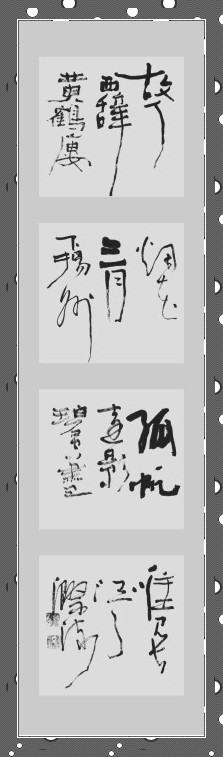 故人
西辞
黄鶴楼
烟花
三月
下揚州
孤帆
遠影
碧空盡
唯見長
江天
際流